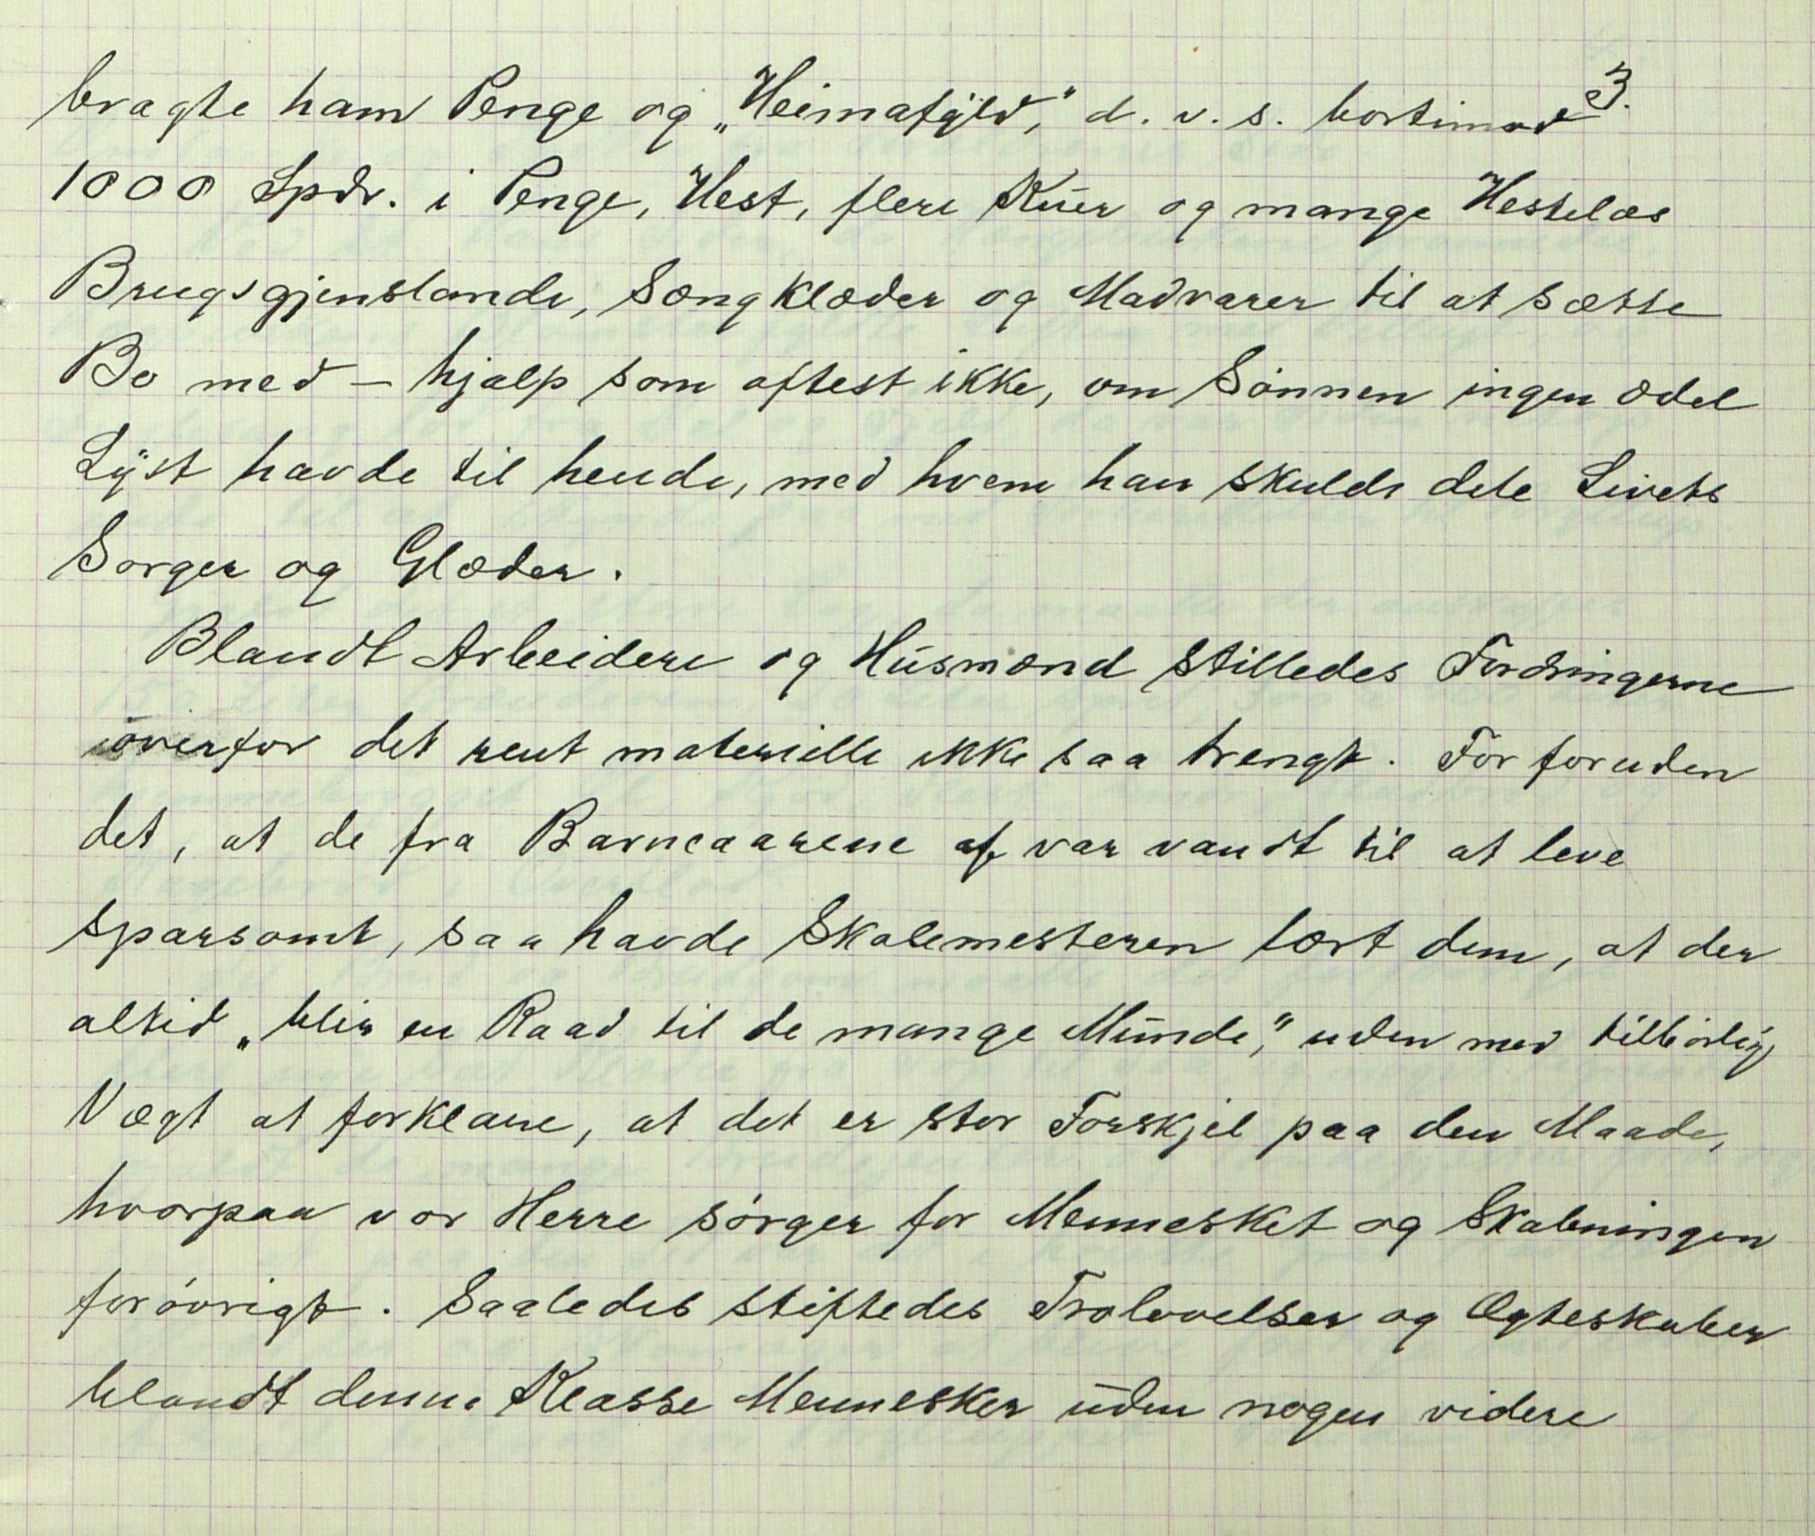 3.
bragte ham Penge og „Heimafyld,“ d. v. s. bortimod
1000 Spdr. i Penge, Hest, flere Kuer og mange Hestelæs
Brugsgjenstande, Sængklæder og Madvarer til at sætte
Bo med – hjalp som oftest ikke, om Sønnen ingen ædel
Lyst havde til hende, med hvem han skulde dele Livets
Sorger og Glæder.
Blandt Arbeidere og Husmænd stilledes Fordringerne
overfor det rent materielle ikke saa trengt. For foruden
det, at de fra Barneaarene af var vandt til at leve
sparsomt, saa havde Skolemesteren lært dem, at der
altid „blir en Raad til de mange Munde,“ uden med tilbørlig
Vægt at forklare, at det er stor Forskjel paa den Maade,
hvorpaa vor Herre sørger for Mennesket og Skabningen
forøvrigt. Saaledes stiftedes Trolovelser og Ægteskaber
blandt denne Klasse Mennesker uden nogen videre